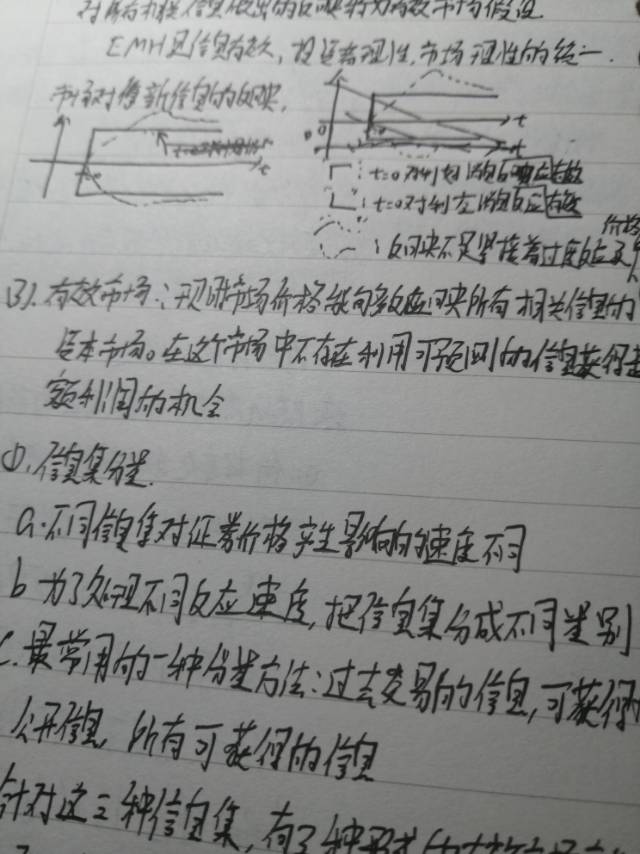 对所有相关信息做出的反映称为有效市场假设
EMH是信息有效,投资者理性,市场理性的统一.
市场对最新信息的反映.
t
t
t=0对利好消息反应有效
t=0对利空消息反应有效
:反映不足紧接着过度反应及
(3).有效市场:现时市场价格能够反应所有相关信息的
资本市场。在这个市场中不存在利用可预测的信息获得超
额利润的机会
①.信息集分类.
a.不同信息集对证券价格产生影响的速度不同
b 为了处理不同反应速度,把信息集分成不同类别
c.最常用的一种分类方法:过去交易的信息,可获得的
公开信息,所有可获得的信息
针对这三种信息集,有了种形式的